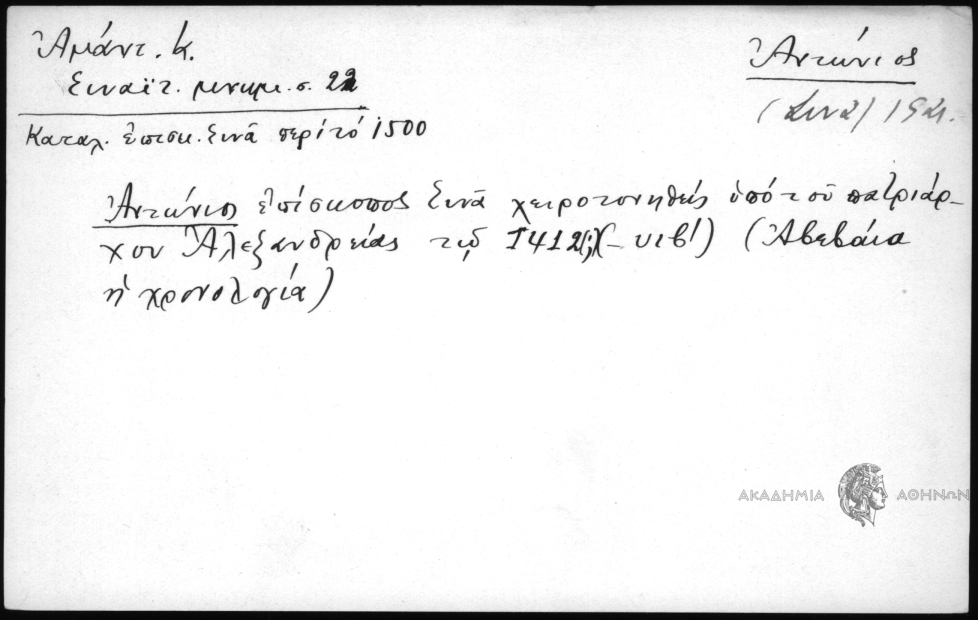 Ἀμάντ. Κ.
Σιναϊτ. μνημ. σ. 22
Καταλ. ἐπισκ. Σινᾶ περί τό 1500
Ἀντώνιος
(Σινᾶ)
Ἀντώνιος ἐπίσκοπος Σινᾶ χειροτονηθείς ὑπό τοῦ πατριάρ-
χου Ἀλεξανδρείας τῷ 1412(;)(–υιβ') (Ἀβεβαία
ἡ χρονολογία)
ΑΚΑΔΗΜΙΑ ΑΘΗΝΩΝ